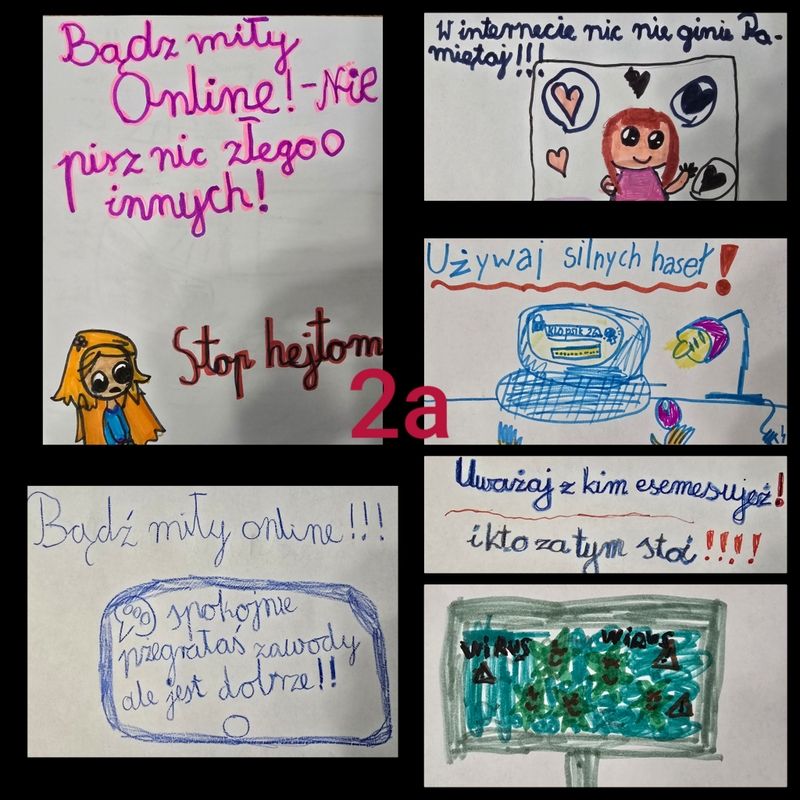 Bądz miły
Online! - Nie
pisz nic złego o
innych!
Stop hejtom
W internecie nic nie ginie Pa-
miętaj!!!
Używaj silnych haseł!
2a
Uważaj z kim esemesujesz!
i kto za tym stoi !!!!
Bądź miły online!!!
spokojnie
przegrałaś zawody
ale jest dobrze!!
WIRUS WIRUS